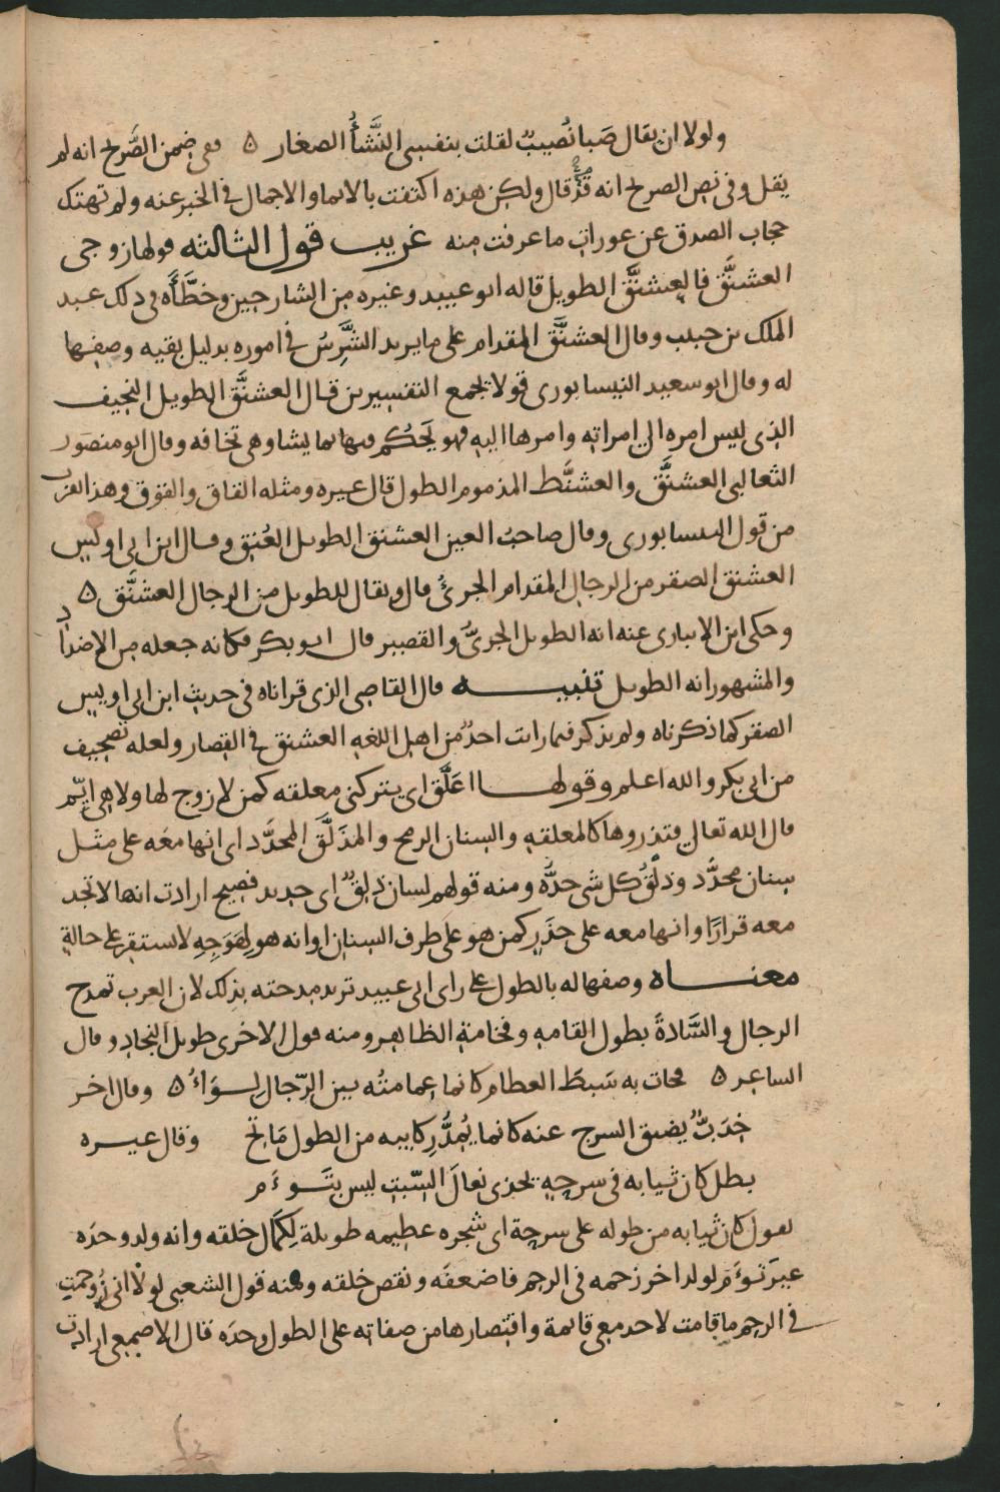 ولولا ان يقال صبا نصيب لقلت بنفسى النشأ الصغار ۵ ففى ضمن الصرح انه لم
يقل وفى نص الصرح انه قد قال ولكن هذه اكتفت بالايما والاجمال فى الخبر عنه ولم تهتك
حجاب الصدق عن عورات ما عرفت منه غريب قول الثالثه قولها زوجى
العشنَّق فالعشنَّق الطويل قاله ابو عبيد وغيره من الشارحين وخطَّأه فى ذلك عبد
الملك بن حبيب وقال العشنَّق المقدام على ما يريد الشَّرِسُ فى اموره بدليل بقيه وصفها
له وقال ابو سعيد النيسابورى قولا يجمع التفسيرين قال العشنَّق الطويل النحيف
الذى ليس امره الى امراته وامرها اليه فهو يَحكُم فيها بما يشا وهى تخافه وقال ابو منصور
الثعالبى العشنَّق والعشنَّط المذموم الطول قال غيره ومثله القاق والقوق وهذا اقرب
من قول النيسابورى وقال صاحب العين العشنق الطويل العُنق وقال ابن ابى اويس
العشنق الصقر من الرجال المقدام الجرئُ قال ويقال للطويل من الرجال العشنَّق ۵
وحكى ابن الانبارى عنه انه الطويل الجرىُّ والقصير قال ابو بكر فكانه جعله من الاضداد
والمشهور انه الطويل تنبيـــه قال القاضى الذى قراناه فى حديث ابن ابى اويس
الصقر كما ذكرناه ولم يذكر فيما رايت احدٌ من اهل اللغه العشنق فى القصار ولعله تصحيف
من ابى بكر والله اعلم وقولهـا اعَلَّق اى يتركنى معلقه كمن لا زوج لها ولا هى ايّم
قال الله تعالى فتذروها كالمعلقه والسنان الرمح والمذَلَّق المحدَّد اى انها معه على مثل
سنان محدَّد وذَلْقُ كل شى حدُّه ومنه قولهم لسان ذلِقٌ اى حديد فصيح ارادت انها لا تجد
معه قرارًا وانها معه على حذَرٍ كمن هو على طرف السنان او انه هو لِهَوَجِهِ لا يستقر على حالةٍ
معنـــاه وصفها له بالطول على راى ابى عبيد تريد مدحته بذلك لان العرب تمدح
الرجال والسَّادةَ بطول القامه وفخامة الظاهر ومنه قول الاخرى طويل النجاد وقال
الشاعر ۵ فجات به سَبطَ العظام كانما عمامتُه بين الرّجالِ لِوَاءُ ۵ وقال اخر
خِدَبٌّ يضيق السرج عنه كانما يُمدُّ رِكابيه من الطول مَاتح وقال غيره
بطل كان ثيابه فى سرحةٍ يحذى نعالَ السّبت ليس بتَوءَم
يقول كان ثيابه من طوله على سرحة اى شجره عظيمه طويلة لِكَمال خلقه وانه ولد وحدَه
غير توءَم لولد اخر زحمه فى الرحم فاضعفَه ونقص خلقه ومنه قول الشعبى لولا انى زُوحمت
فى الرحم ما قامت لاحد معى قائمة واقتصارها من صفاته على الطول وحدَه قال الاصمعى ارادت